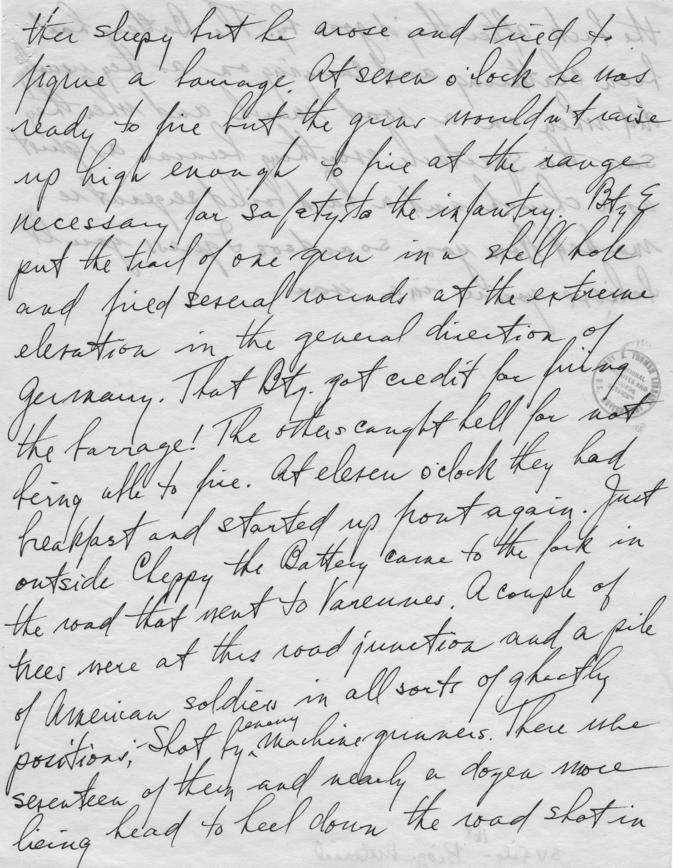 ther sleepy but he arose and tried to
figure a barrage. At seven o'clock he was
ready to fire but the guns wouldn't raise
up high enough to fire at the range
necessary for safety to the infantry. Bty E
put the trail of one gun in a shell hole
and fired several rounds at the extreme
elevation in the general direction of
Germany. That Bty. got credit for firing
the barrage! The others caught hell for not
being able to fire. At eleven o'clock they had
breakfast and started up front again. Just
outside Cheppy the Battery came to the fork in
the road that went to Varennes. A couple of
trees were at this road junction and a pile
of American soldiers in all sorts of ghastly
positions; Shot by enemy machine gunners. There were
seventeen of them and nearly a dozen more
lieing head to heel down the road shot in